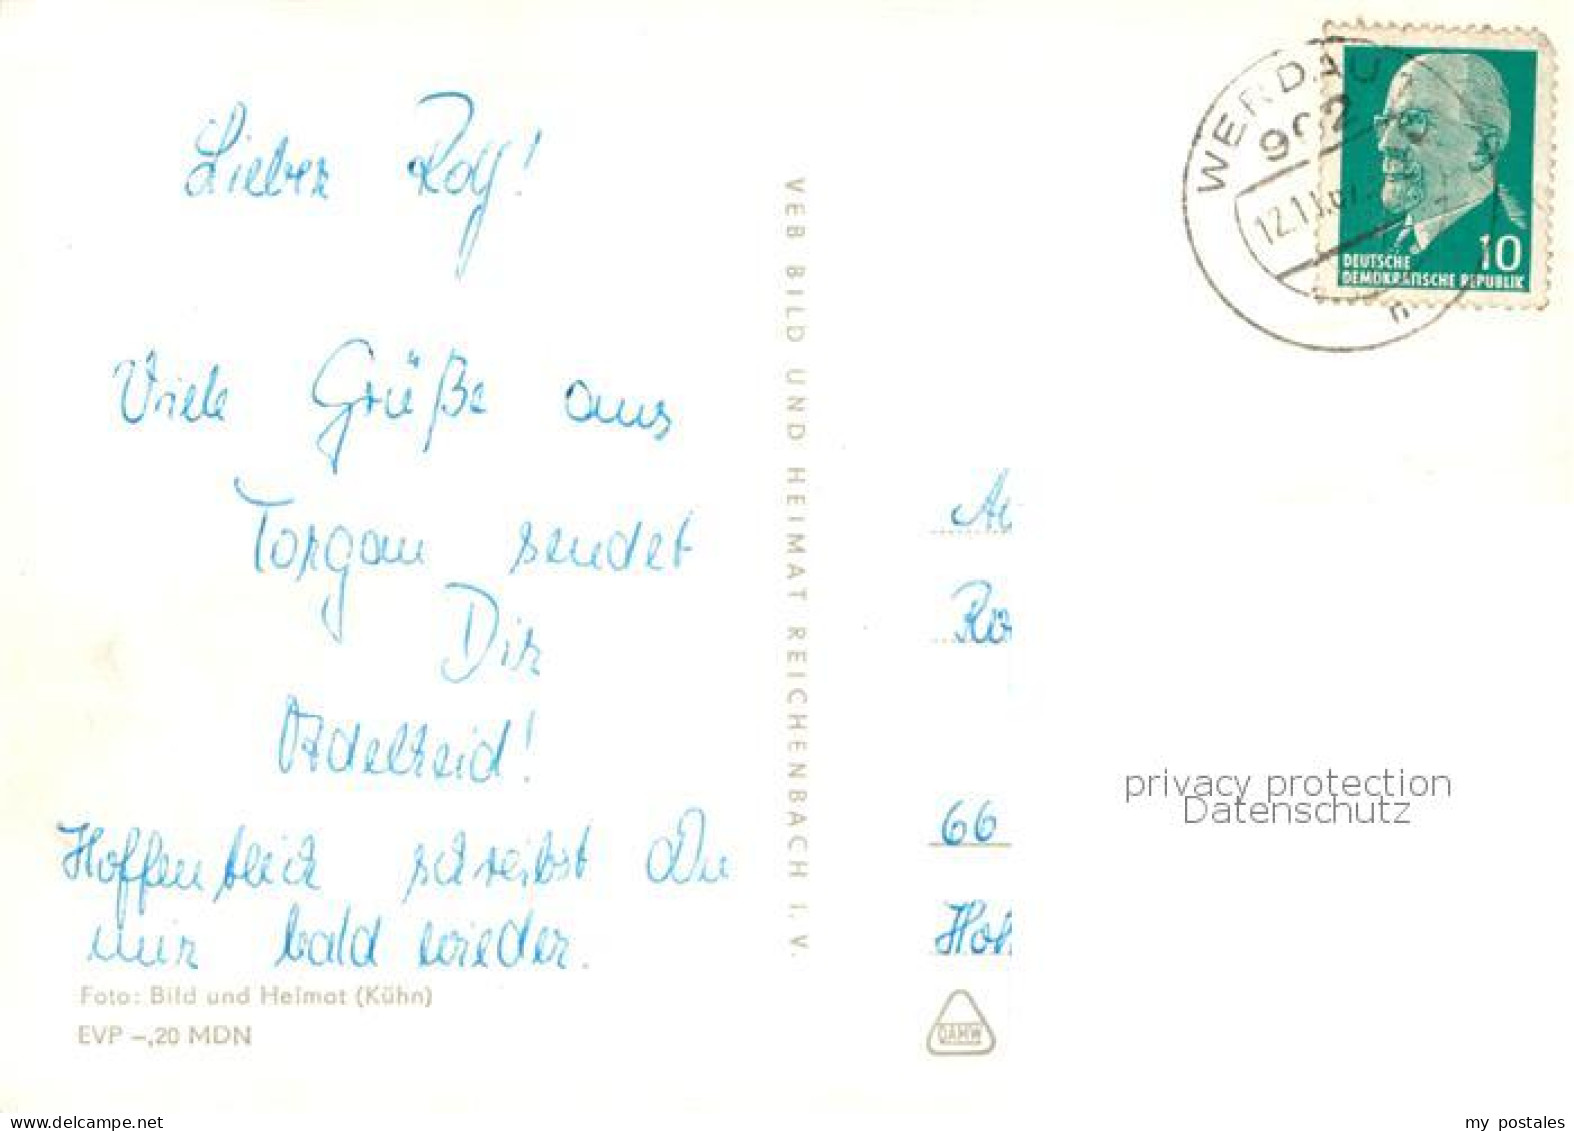 Lieber Rolf!
Viele Grüße aus
Torgau sendet
Dir
Adelheid!
Hoffentlich schreibst Du
mir bald wieder.
Foto: Bild und Heimat (Kühn)
EVP –,20 MDN
VEB BILD UND HEIMAT REICHENBACH I. V.
WERDAU 1
962
12.1
DEUTSCHE
DEMOKRATISCHE REPUBLIK
10
66
DAMW
privacy protection
Datenschutz
www.ansichtskarten-center.de
my postales